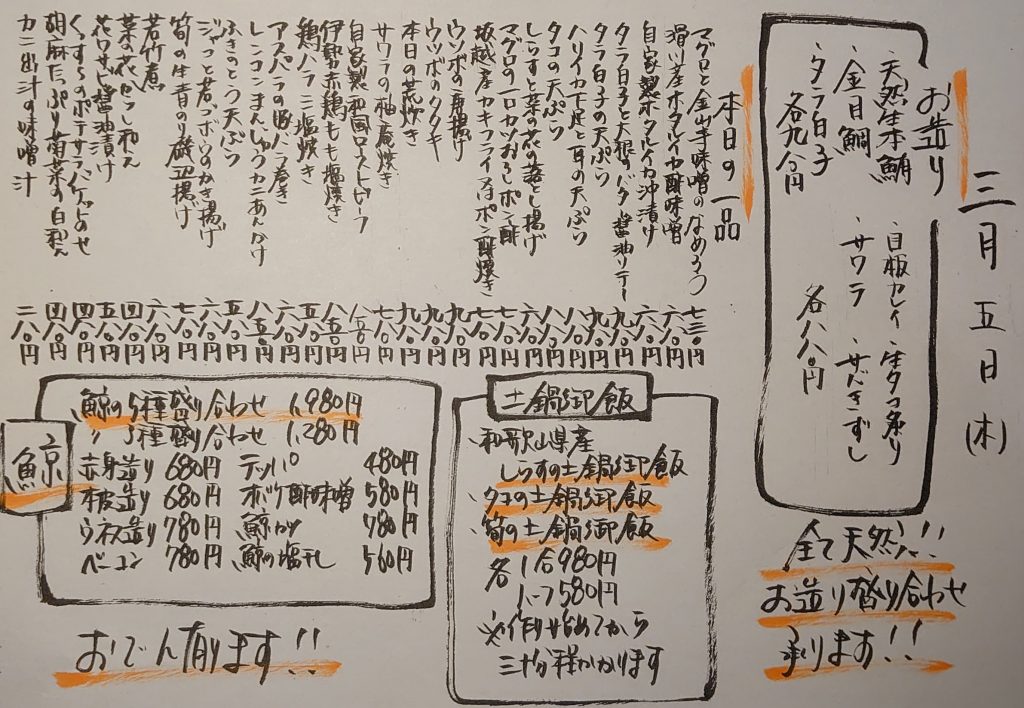 三月五日(木)
お造り
・天然生本鮪
・金目鯛
・タラ白子
各九八〇円
・目板カレイ
・生タコ炙り
・サワラ
・サバきずし
各八八〇円
全て天然!!
お造り盛り合わせ
承ります!!
本日の一品
マグロと金山寺味噌のなめろう 七三〇円
滑川産ホタルイカ酢味噌 六八〇円
自家製ホタルイカ沖漬け 六八〇円
タラ白子と大根のバター醤油ソテー 九八〇円
タラ白子の天ぷら 九八〇円
ハリイカ下足と耳の天ぷら 八八〇円
タコの天ぷら 八八〇円
しらすと菜の花の落とし揚げ 六八〇円
マグロの一口カツおろしポン酢 七八〇円
坂越産カキフライ又はポン酢焼き 七八〇円
ウツボの唐揚げ 九八〇円
ウツボのタタキ 九八〇円
本日の荒炊き 九八〇円
サワラの柚庵焼き 九八〇円
自家製和風ローストビーフ
伊勢赤鶏もも塩焼き 八五〇円
鶏ハラミ塩焼き 五八〇円
アスパラの豚バラ巻き 六八〇円
レンコンまんじゅうカニあんかけ 八五〇円
ふきのとう天ぷら 五八〇円
じゃこと若ゴボウのかき揚げ 六八〇円
筍の生青のり磯辺揚げ 七八〇円
若竹煮 六八〇円
菜の花からし和え
花ワサビ醤油漬け
ポテサラバゲットのせ 四八〇円
胡麻たっぷり菊菜の白和え 四八〇円
カニ出汁の味噌汁 二八〇円
土鍋御飯
・和歌山県産
しらすの土鍋御飯
・タコの土鍋御飯
・筍の土鍋御飯
各1合980円
ハーフ580円
※作り始めてから
三十分程かかります
鯨
鯨の5種盛り合わせ 1,980円
〃 3種盛り合わせ 1,280円
赤身造り 680円 テッパ 480円
本皮造り 680円 オバケ酢味噌 580円
ウネス造り 780円 鯨カツ 780円
ベーコン 780円 鯨の塩干し 560円
おでん有ります!!